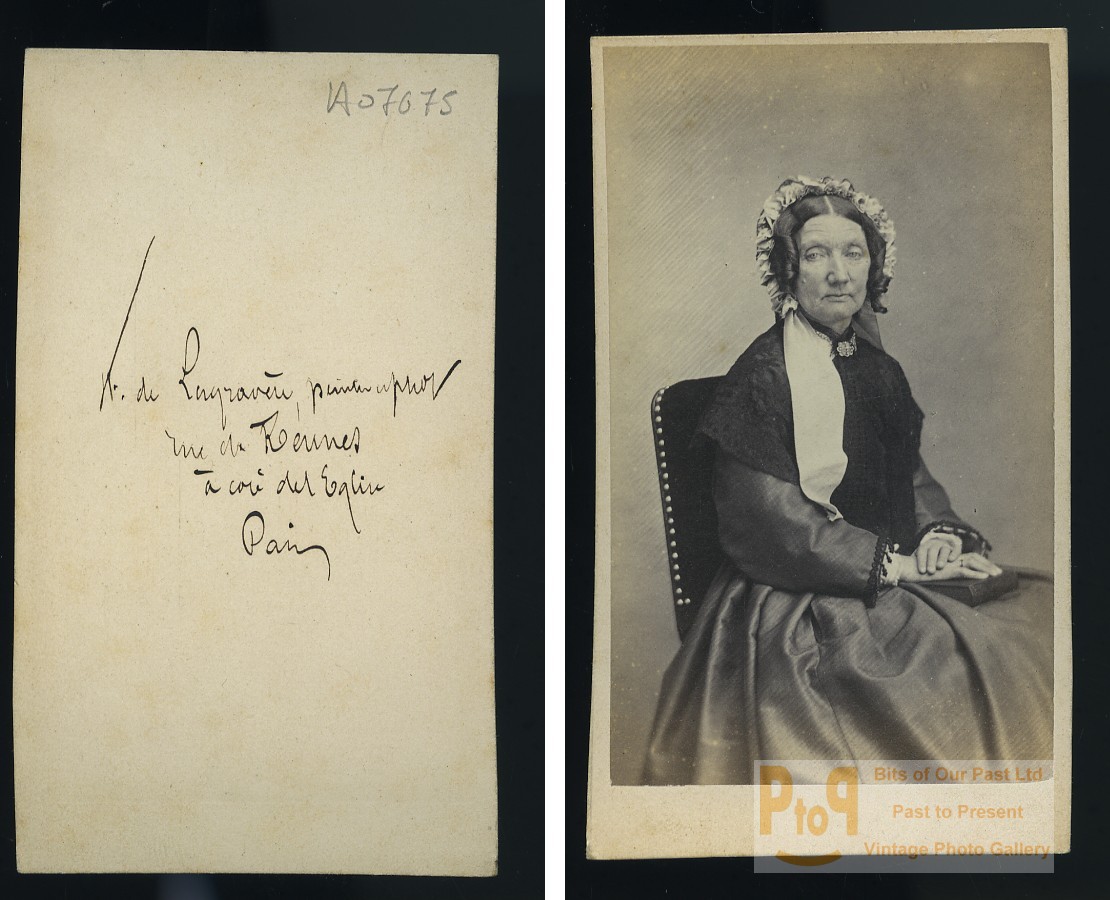 IA07675
de Lagravère, peintre & phot
rue de Rennes
à coté del Eglise
Paris
PtoP
Bits of Our Past Ltd.
Past to Present
Vintage Photo Gallery